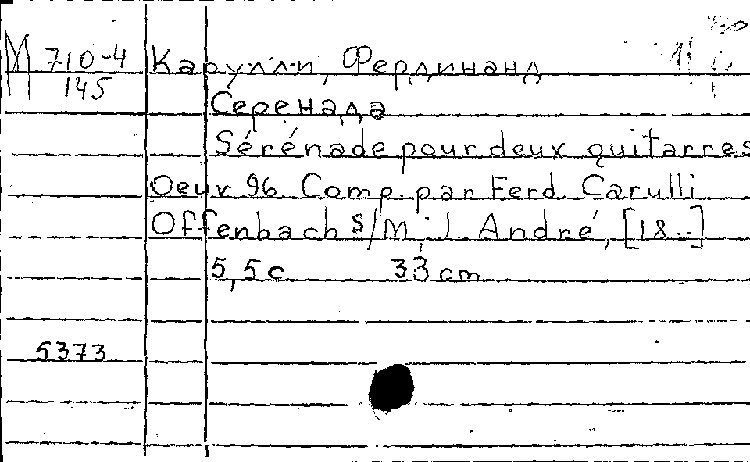 М 710-4 Карулли, Фердинанд
145
Серенада
Sérénade pour deux guitarres
Oeuv 96. Comp. par Ferd. Carulli
Offenbach s/M, J. André, [18..]
5,5 c 33 cm
5373